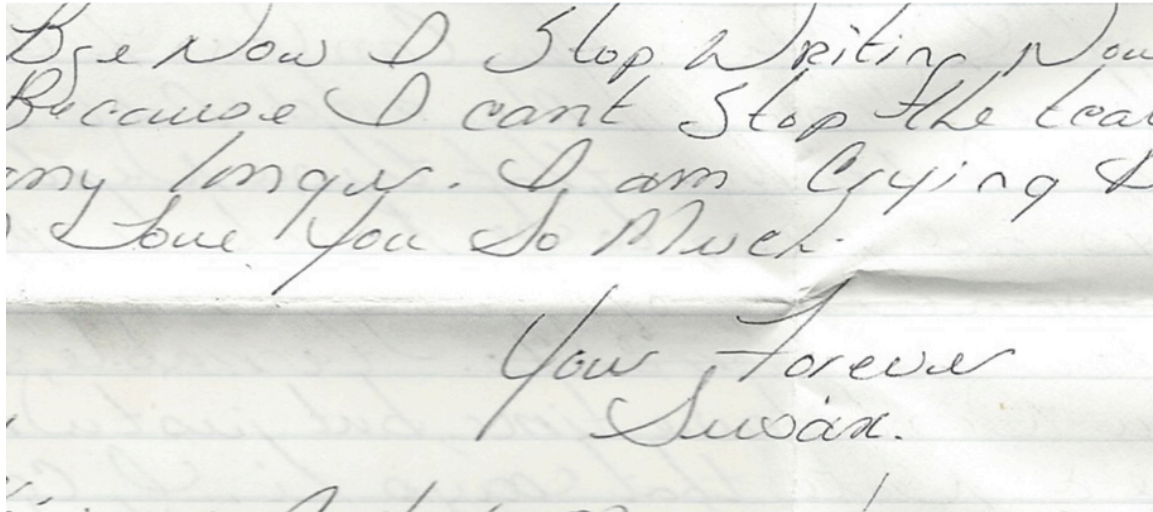 Bye Now I Stop Writing Now
Because I cant Stop the tear
any longer. I am Crying &
I Love You So Much.
Your Forever
Susan.